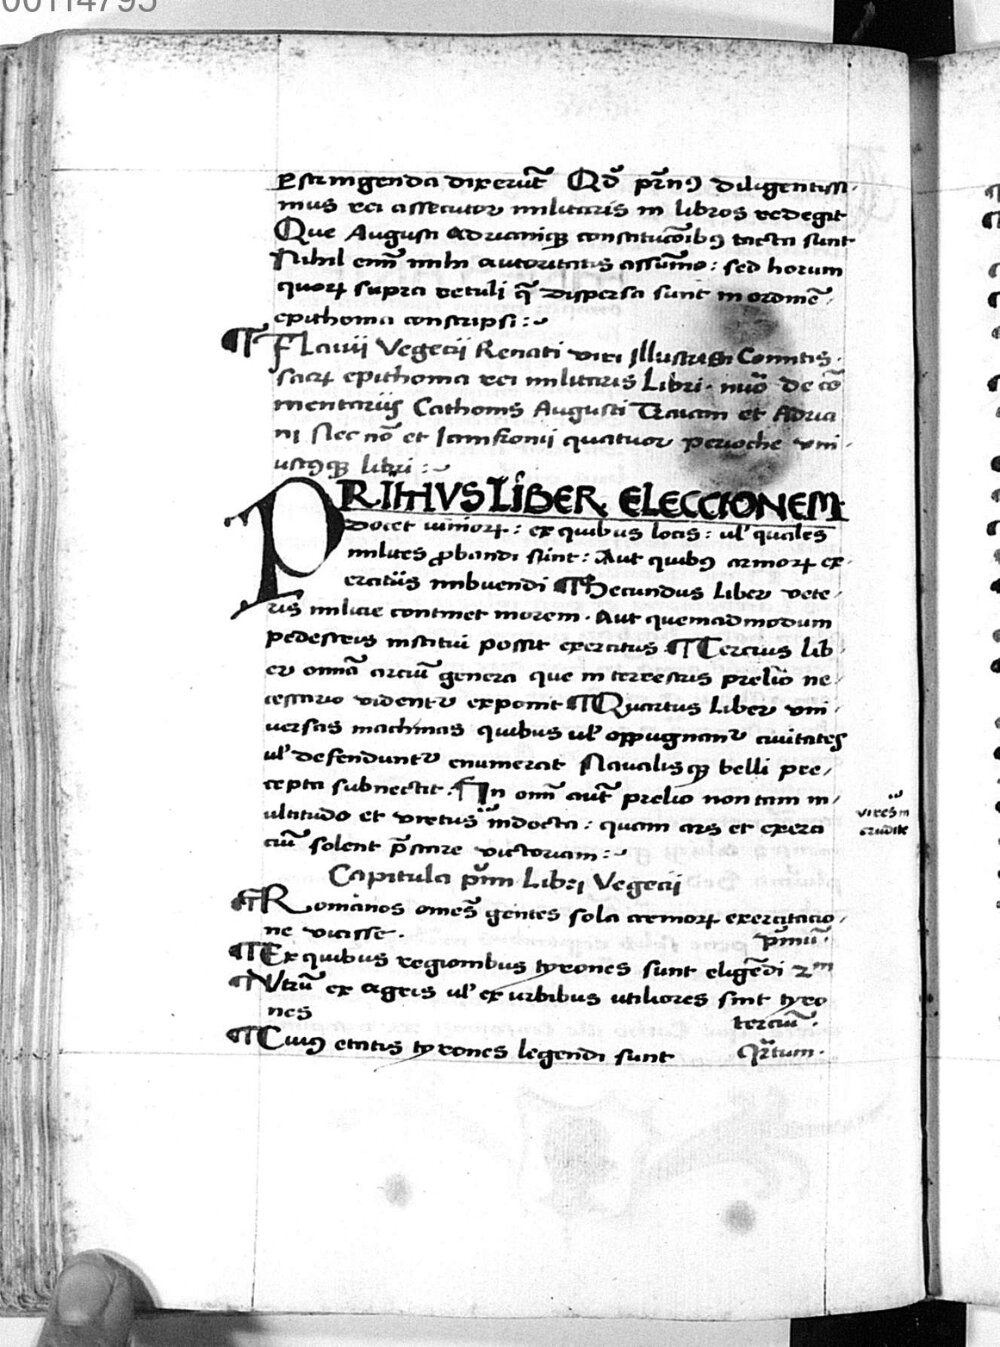 00114795
Perstringenda dixerūt Qđ prīn9 diligentissi
mus rei assecutor militaris in libros redegit
Que Augusti Adrianiq3 constitucōib9 tacta sunt
Nihil enī mihi autoritatis assūmo : sed horum
quorꝝ supra retuli q̄ dispersa sunt in ordinē
epithoma conscripsi :~
¶ Flauij Vegecij Renati viri Illustris Comitis
sacrꝝ epithoma rei militaris Libri . nuō de cō
mentarijs Cathonis Augusti Traiani et Adria
ni Nec nō et quatuor perioche vni
libri :~
PRIMVS LIBER ELECCIONEM
docet iuniorꝝ : ex quibus locis : ul' quales
milites ꝓbandi sint : Aut quib9 armorꝝ ex
ercitijs imbuendi ¶ Secundus liber vete
ris milicie continet morem . Aut quemadmodum
pedestris institui possit exercitus ¶ Tercius lib
er omīa arciū genera que in terrestris prelio ne
cessario vident᷑ exponit ¶ Quartus liber vni
uersas machinas quibus ul' oppugnant᷑ ciuitates
ul' defendunt᷑ enumerat Naualisq3 belli pre
cepta subnectit . ¶ In omī aūt prelio non tam m
ultitudo et virtus indocta : quam ars et exerci
ciū solent p̄stare victoriam :~
vires in
erudite
Capitula p̄mi Libri Vegecij
¶ Romanos omēs gentes sola armorꝝ exercitacio
ne vicisse . p̄mū .
¶ Ex quibus regionibus tyrones sunt eligēdi 2m
¶ Vtrū ex agris ul' ex urbibus utiliores sint tyro
nes terciū .
¶ Cui9 etatis tyrones legendi sunt q̄rtum .